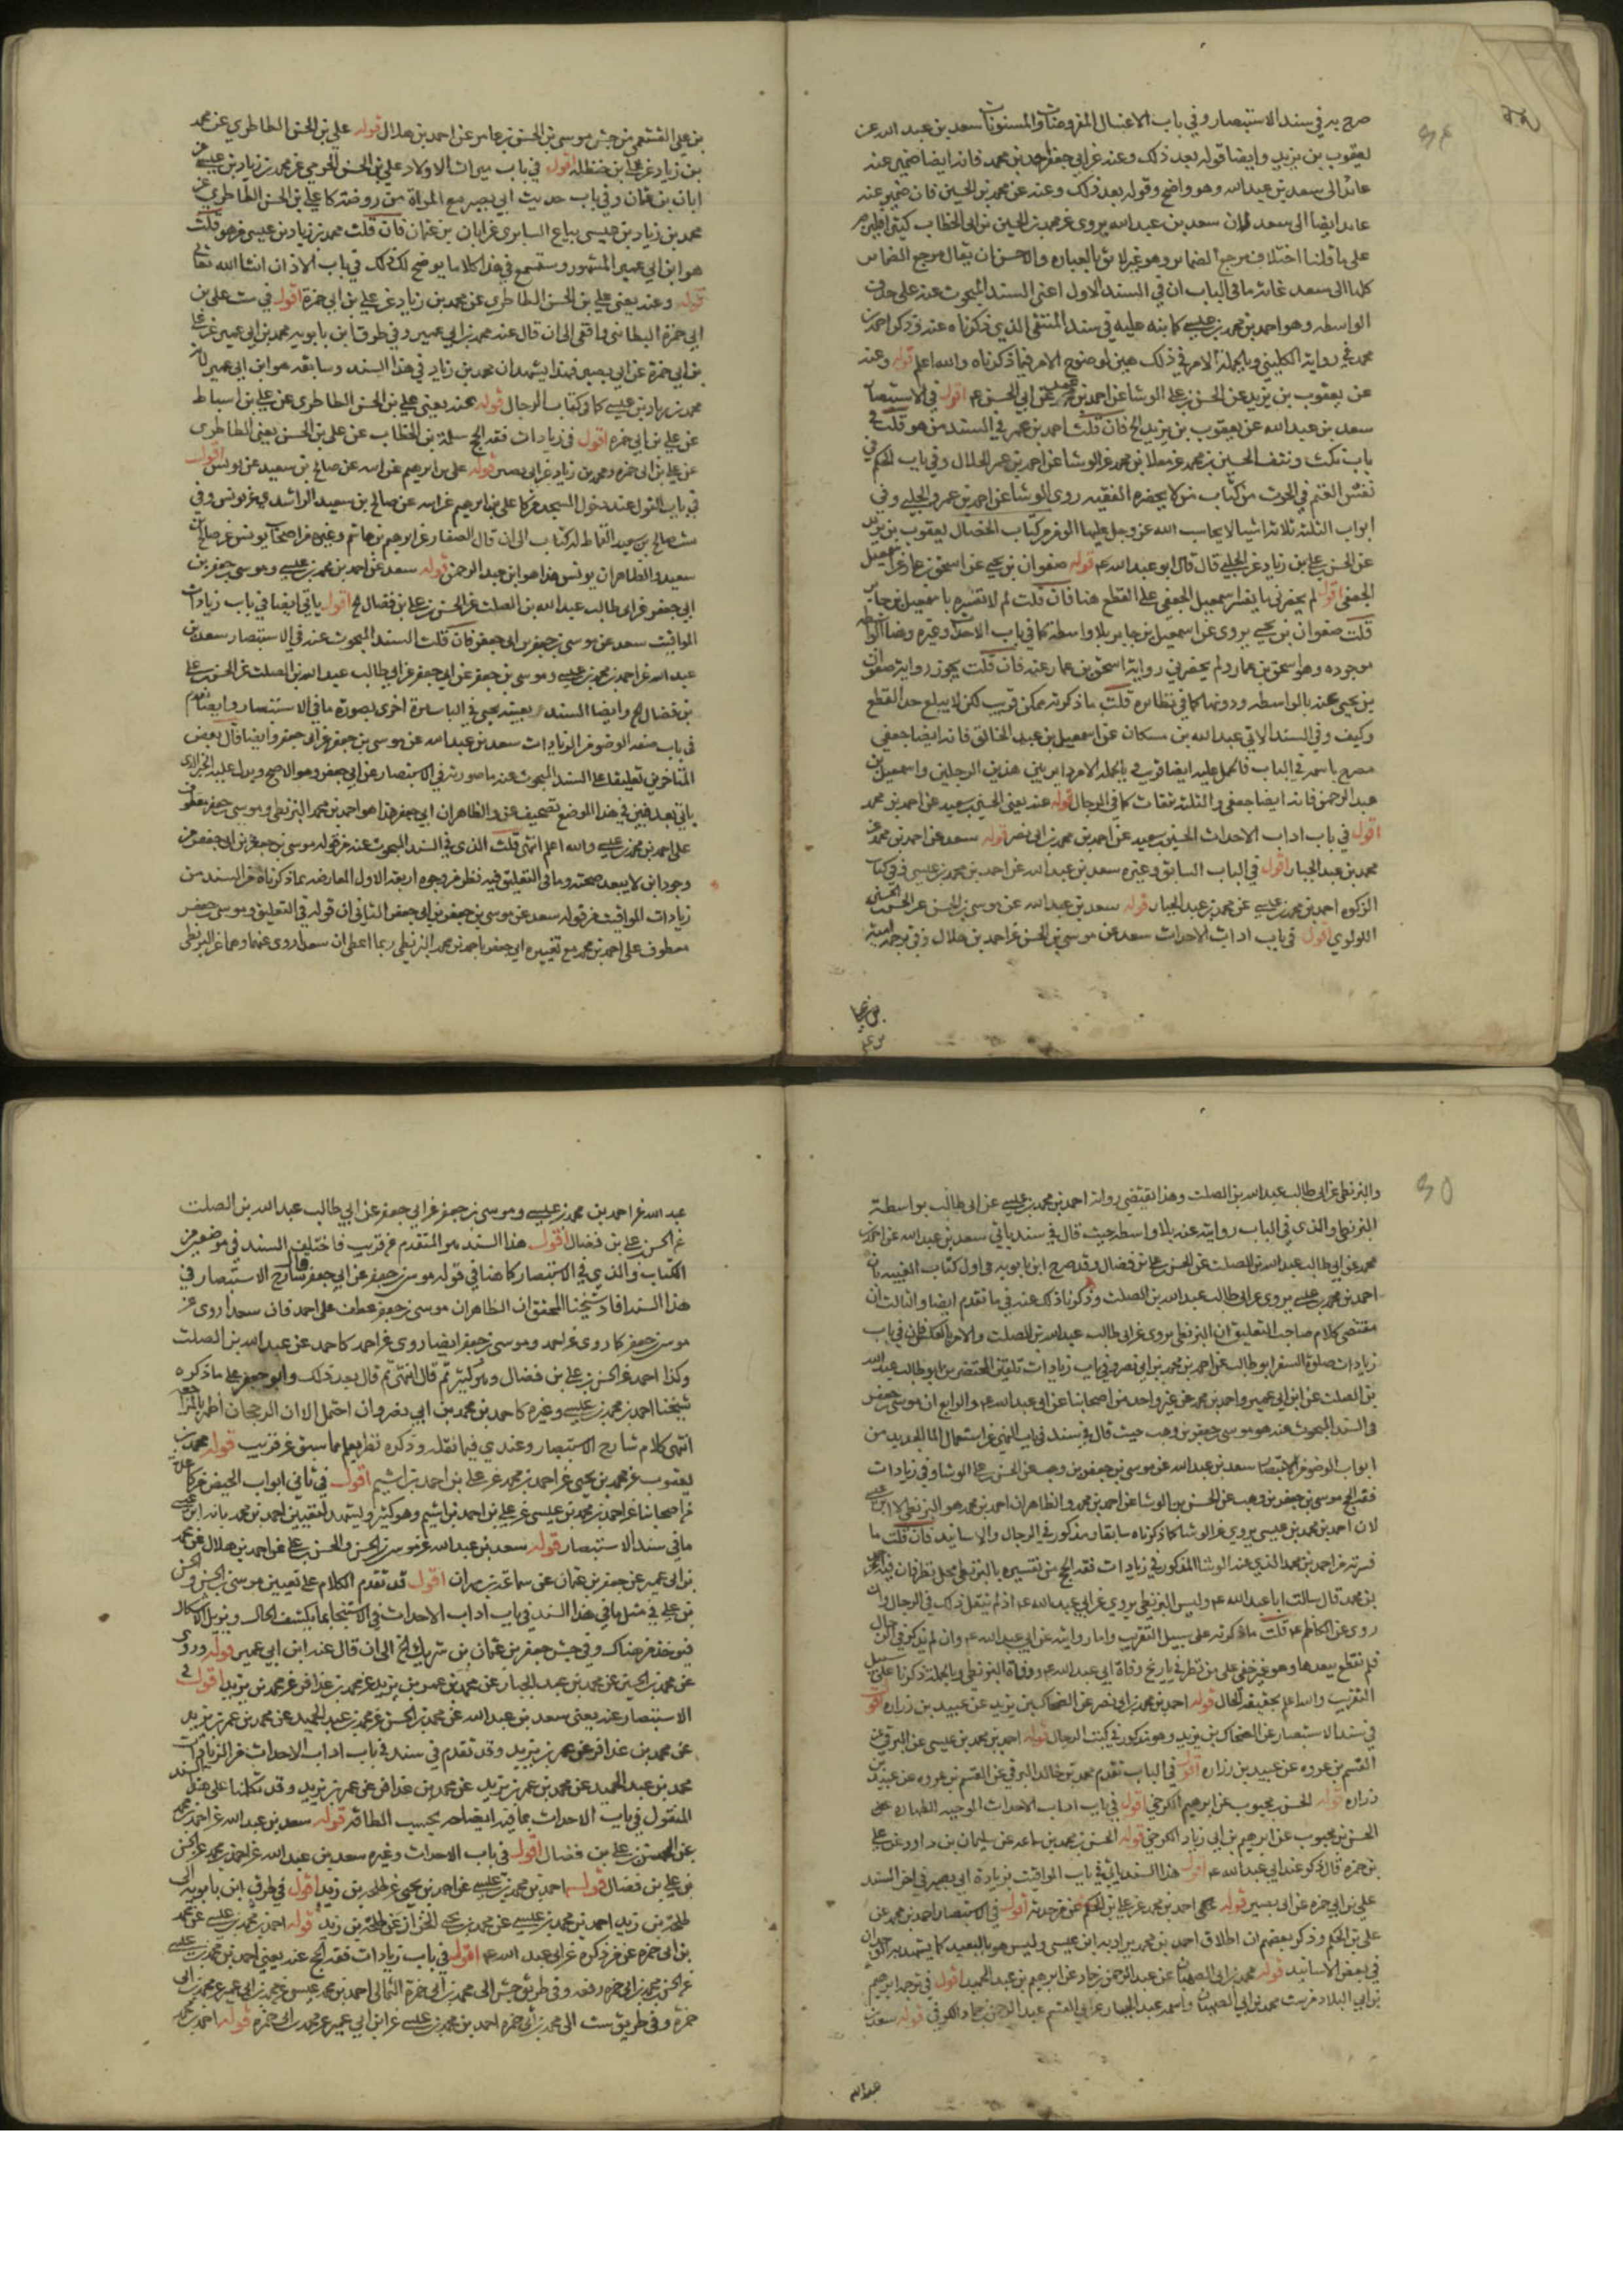 صرح به في سند الاستبصار وفي باب الاغسال المفروضات والمسنونات سعد بن عبد الله عن
يعقوب بن يزيد وايضا قوله بعد ذلك وعنه عن ابي جعفر احمد بن محمد فانه ايضا ضمير عنه
عائد الى سعد بن عبد الله وهو واضح وقوله بعد ذلك وعنه عن محمد بن الحسين فان ضمير عنه
عائد ايضا الى سعد فان سعد بن عبد الله يروي عن محمد بن الحسين بن ابي الخطاب
على ما قلنا اختلاف مرجع الضمائر وهو غير لائق بالعباره والاحسن ان يقال مرجع الضمائر
كلها الى سعد غايته ما في الباب ان في السند الاول اعني السند المبحوث عنه على حذف
الواسطه وهو احمد بن محمد بن عيسى كما نبه عليه في سند المنتقى الذي ذكرناه عنه
محمد في رواية الكليني وبالجملة الامر في ذلك هين لوضوح الامر فيما ذكرناه والله اعلم قوله وعنه
عن يعقوب بن يزيد عن الحسن بن علي الوشا عن احمد بن عمر عن ابي الحسن ع اقول في الاستبصار
سعد بن عبد الله عن يعقوب بن يزيد الخ فان قلت احمد بن عمر في السند من هو قلت في
باب نكت ونتف الحسين بن محمد عن معلا بن محمد عن الوشا عن احمد بن عمر الحلال وفي باب الحكم في
نفش الغنم في الحرث من كتاب من لا يحضره الفقيه روى الوشا عن احمد بن عمر الحلبي وفي
ابواب الثلثه ثلاثة اشيا لا يحاسب الله عز وجل عليها المؤمن من كتاب الخصال يعقوب بن يزيد
عن الحسن بن علي بن زياد عن الحلبي قال قال ابو عبد الله ع قوله صفوان بن يحيى عن اسحق بن عمار عن اسمعيل
الجعفي اقول لم يحضرني ما يفسر اسمعيل الجعفي على القطع هنا فان قلت لم لا تفسره باسمعيل بن جابر
قلت صفوان بن يحيى يروي عن اسمعيل بن جابر بلا واسطة كما في باب الاحداث وغيره وهنا الواسطه
موجوده وهو اسحق بن عمار ولم يحضرني رواية اسحق بن عمار عنه فان قلت يجوز رواية صفوان
بن يحيى عنه بالواسطه ودونها كما في نظائره قلت ما ذكرته ممكن قريب لكن لا يبلغ حد القطع
وكيف وفي السند الاتي عبد الله بن مسكان عن اسمعيل بن عبد الخالق فانه ايضا جعفي
مصرح باسمه في الباب فالحمل عليه ايضا قريب وبالجمله الامر دائر بين هذين الرجلين واسمعيل بن
عبد الرحمن فانه ايضا جعفي والثلثه ثقات كما في الرجال قوله عنه يعني الحسين بن سعيد عن احمد بن محمد
اقول في باب اداب الاحداث الحسين بن سعيد عن احمد بن محمد بن ابي نصر قوله سعد عن احمد بن محمد عن
محمد بن عبد الجبار اقول في الباب السابق وغيره سعد بن عبد الله عن احمد بن محمد بن عيسى وفي كتاب
الزكوه احمد بن محمد بن عيسى عن محمد بن عبد الجبار قوله سعد بن عبد الله عن موسى بن الحسن عن الحسن بن الحسين
اللولوي اقول في باب اداب الاحداث سعد عن موسى بن الحسن عن احمد بن هلال وفي ترجمة اميه
بن علي القيسي من جش موسى بن الحسن بن عامر عن احمد بن هلال قوله علي بن الحسن الطاطري عن محمد
بن زياد عن علي بن حنظله اقول في باب ميراث الاولاد علي بن الحسن الجرمي عن محمد بن زياد بن عيسى عن
ابان بن عثمان وفي باب حديث ابي بصير مع المراة من روضة كا علي بن الحسن الطاطري عن
محمد بن زياد بن عيسى بياع السابري عن ابان بن عثمان فان قلت محمد بن زياد بن عيسى من هو قلت
هو ابن ابي عمير المشهور وستسمع في هذا كلاما يوضح لك ذلك في باب الاذان انشا الله تعالى
قوله وعنه يعني علي بن الحسن الطاطري عن محمد بن زياد عن علي بن ابي حمزة اقول في ست علي بن
ابي حمزة البطائني واقفي الى ان قال عنه محمد بن ابي عمير وفي طرق ابن بابويه محمد بن ابي عمير عن علي
بن ابي حمزة عن ابي بصير فهذا يشهد ان محمد بن زياد في هذا السند وسابقه هو ابن ابي عمير لانه
محمد بن زياد بن عيسى كما في كتاب الرجال قوله عنه يعني علي بن الحسن الطاطري عن علي بن اسباط
عن علي بن ابي حمزه اقول في زيادات فقه الحج سلمة بن الخطاب عن علي بن الحسن يعني الطاطري
عن علي بن ابي حمزه ومحمد بن زياد عن ابي بصير قوله علي بن ابرهيم عن ابيه عن صالح بن سعيد عن يونس اقول
في باب القول عند دخول المسجد من كا علي بن ابرهيم عن ابيه عن صالح بن سعيد الراشدي عن يونس وفي
ست صالح بن سعيد القماط له كتاب الى ان قال الصفار عن ابرهيم بن هاشم وغيره من اصحاب يونس عن صالح بن
سعيد والظاهر ان يونس هذا هو ابن عبد الرحمن قوله سعد عن احمد بن محمد بن عيسى وموسى بن جعفر بن
ابي جعفر عن ابي طالب عبد الله بن الصلت عن الحسن بن علي بن فضال الخ اقول ياتي ايضا في باب زيادات
المواقيت سعد عن موسى بن جعفر بن ابي جعفر فان قلت السند المبحوث عنه في الاستبصار سعد بن
عبد الله عن احمد بن محمد بن عيسى وموسى بن جعفر عن ابي جعفر عن ابي طالب عبد الله بن الصلت عن الحسن بن علي
بن فضال الخ وايضا السند بعينه يجي في الباب مرة اخرى بصورة ما في الاستبصار وايضا تقدم
في باب صفه الوضوء من الزيادات سعد بن عبد الله عن موسى بن جعفر عن ابي جعفر وايضا قال بعض
المتاخرين تعليقا على السند المبحوث عنه ما صورته في الاستبصار عن ابي جعفر وهو الاصح ويدل عليه الخبر الذي
ياتي بعد فبين في هذا الموضع تصحيف عن والظاهر ان ابي جعفر هذا هو احمد بن محمد البزنطي وموسى بن جعفر معطوف
على احمد بن محمد بن عيسى والله اعلم انتهى قلت الذي في السند المبحوث عنه من قوله موسى بن جعفر بن ابي جعفر من
وجود ابن لا يبعد صحته وما في التعليق فيه نظر من وجوه اربعة الاول المعارضه بما ذكرناه من السند من
زيادات المواقيت من قوله سعد عن موسى بن جعفر بن ابي جعفر الثاني ان قوله في التعليق وموسى بن جعفر
معطوف على احمد بن محمد مع تفسيره ابي جعفر باحمد بن محمد البزنطي ربما اعطى ان سعدا روى عنهما وهما عن البزنطي
والبزنطي عن ابي طالب عبد الله بن الصلت وهذا يقتضي رواية احمد بن محمد بن عيسى عن ابي طالب بواسطة
البزنطي والذي في الباب روايته عنه بلا واسطه حيث قال في سند ياتي سعد بن عبد الله عن احمد بن
محمد عن ابي طالب عبد الله بن الصلت عن الحسن بن علي بن فضال وقد صرح ابن بابويه في اول كتاب الغيبه بان
احمد بن محمد بن عيسى يروي عن ابي طالب عبد الله بن الصلت وذكرنا ذلك عنه في ما تقدم ايضا والثالث ان
مقتضى كلام صاحب التعليق ان البزنطي يروي عن ابي طالب عبد الله بن الصلت والامر بالعكس فان في باب
زيادات صلوة السفر ابو طالب عن احمد بن محمد بن ابي نصر وفي باب زيادات تلقين المحتضرين ابو طالب عبد الله
بن الصلت عن ابن ابي عمير واحمد بن محمد عن غير واحد من اصحابنا عن ابي عبد الله ع والرابع ان موسى بن جعفر
في السند المبحوث عنه هو موسى بن جعفر بن وهب حيث قال في سند في باب النهي عن استعمال الماء الجديد من
ابواب الوضوء من الاستبصار سعد بن عبد الله عن موسى بن جعفر بن وهب عن الحسن بن علي الوشا وفي زيادات
فقه الحج موسى بن جعفر بن وهب عن الحسن بن الوشا عن احمد بن محمد والظاهر ان احمد بن محمد هو البزنطي لا ابن عيسى
لان احمد بن محمد بن عيسى يروي عن الوشا كما ذكرناه سابقا ومذكور في الرجال والاسانيد فان قلت ما
فسرته من احمد بن محمد الذي عنه الوشا المذكور في زيادات فقه الحج من تفسيره بالبزنطي محل نظر فان فيه احمد
بن محمد قال سالت ابا عبد الله ع وليس البزنطي يروي عن ابي عبد الله ع اذ لم ينقل ذلك في الرجال بل
روى عن الكاظم ع قلت ما ذكرته على سبيل التقريب واما روايته عن ابي عبد الله ع وان لم تذكر في الرجال
فلم نقطع ببعدها وهو غير خفي على من نظر في تاريخ وفاة ابي عبد الله ع ووفاة البزنطي وبالجملة ذكرنا على سبيل
التقريب والله اعلم بحقيقة الحال قوله احمد بن محمد بن ابي نصر عن الضحاك بن يزيد عن عبيد بن زراره اقول
في سند الاستبصار عن الضحاك بن يزيد وهو مذكور في كتب الرجال قوله احمد بن محمد بن عيسى عن البرقي عن
القسم بن عروه عن عبيد بن زراره اقول في الباب تقدم محمد بن خالد البرقي عن القسم بن عروه عن عبيد بن
زراره قوله الحسن بن محبوب عن ابرهيم الكرخي اقول في باب اداب الاحداث الموجبه للطهاره عن
الحسن بن محبوب عن ابرهيم بن ابي زياد الكرخي قوله الحسن بن محمد بن سماعه عن سليمان بن داود عن علي
بن حمزه قال ذكر عند ابي عبد الله ع اقول هذا السند ياتي في باب المواقيت بزيادة ابي بصير في اخر السند
علي بن ابي حمزه عن ابي بصير قوله احمد بن محمد عن علي بن الحكم عمن حدثه اقول في الاستبصار احمد بن محمد عن
علي بن الحكم وذكر بعضهم ان اطلاق احمد بن محمد يراد به ابن عيسى وليس هو بالبعيد كما يشهد به
في بعض الاسانيد قوله محمد بن ابي الصهبان عن عبد الرحمن بن حماد عن ابرهيم بن عبد الحميد اقول في ترجمة ابرهيم
بن ابي البلاد من ست محمد بن ابي الصهبان واسمه عبد الجبار عن ابي القسم عبد الرحمن بن حماد الكوفي قوله سعد بن
عبد الله
عبد الله عن احمد بن محمد بن عيسى وموسى بن جعفر عن ابي جعفر عن ابي طالب عبد الله بن الصلت
عن الحسن بن علي بن فضال اقول هذا السند هو المتقدم من قريب فاختلف السند في موضعين من
الكتاب والذي في الاستبصار كما هنا في قوله موسى بن جعفر عن ابي جعفر قال شارح الاستبصار في
هذا السند افاد شيخنا المحقق ان الظاهر ان موسى بن جعفر عطف على احمد فان سعدا روى عن
موسى بن جعفر كما روى عن احمد وموسى بن جعفر ايضا روى عن احمد كاحمد عن عبد الله بن الصلت
وكذا احمد عن الحسن بن علي بن فضال وهو كثير ثم قال انتهى ثم قال بعد ذلك وابو جعفر على ما ذكره
شيخنا احمد بن محمد بن عيسى وغيره كاحمد بن محمد بن ابي نصر وان احتمل الا ان الرجحان اظهر
انتهى كلام شارح الاستبصار وعندي فيما نقله وذكره نظر يعلم مما سبق عن قريب قوله محمد بن
يعقوب عن محمد بن يحيى عن احمد بن محمد عن علي بن احمد بن اشيم اقول في ثاني ابواب الحيض من كا
من اصحابنا عن احمد بن محمد بن عيسى عن علي بن احمد بن اشيم وهو كثير ويشهد لتعيين احمد بن محمد بانه ابن عيسى
ما في سند الاستبصار قوله سعد بن عبد الله عن موسى بن الحسن والحسن بن علي عن احمد بن هلال عن محمد
بن ابي عمير عن جعفر بن عثمان عن سماعة بن مهران اقول قد تقدم الكلام على تعيين موسى بن الحسن والحسن
بن علي في مثل ما في هذا السند في باب اداب الاحداث في الاستنجا بما يكشف الحال ويزيل الاشكال
فيؤخذ من هناك وفي جش جعفر بن عثمان بن شريك الخ الى ان قال عنه ابن ابي عمير قوله وروى
عن محمد بن الحسين عن محمد بن عبد الجبار عن محمد بن عمر بن يزيد عن محمد بن عذافر عن محمد بن يزيد اقول في
الاستبصار عنه يعني سعد بن عبد الله عن محمد بن الحسن عن محمد بن عبد الحميد عن محمد بن عمر بن يزيد
عن محمد بن عذافر عن عمر بن يزيد وقد تقدم في سند في باب اداب الاحداث من الزيادات
محمد بن عبد الحميد عن محمد بن عمر بن يزيد عن محمد بن عذافر عن عمر بن يزيد وقد تكلمنا على هذا السند
المنقول في باب الاحداث بما فيه ايضاحه بحسب الطاقه قوله سعد بن عبد الله عن احمد بن محمد
عن الحسن بن علي بن فضال اقول في باب الاحداث وغيره سعد بن عبد الله عن احمد بن محمد عن الحسن
بن علي بن فضال قوله احمد بن محمد بن عيسى عن احمد بن يحيى عن طلحه بن زيد اقول في طرق ابن بابويه الى
طلحه بن زيد احمد بن محمد بن عيسى عن محمد بن يحيى الخزاز عن طلحه بن زيد قوله احمد بن محمد بن عيسى عن محمد
بن ابي حمزه عمن ذكره عن ابي عبد الله ع اقول في باب زيادات فقه الحج عنه يعني احمد بن محمد بن عيسى
عن الحسن عن محمد بن ابي حمزه رفعه وفي طريق جش الى محمد بن ابي حمزة الثمالي احمد بن محمد بن عيسى عن محمد بن ابي عمير عن محمد بن ابي
حمزه وفي طريق ست الى محمد بن ابي حمزه احمد بن محمد بن عيسى عن ابن ابي عمير عن محمد بن ابي حمزه قوله احمد بن محمد